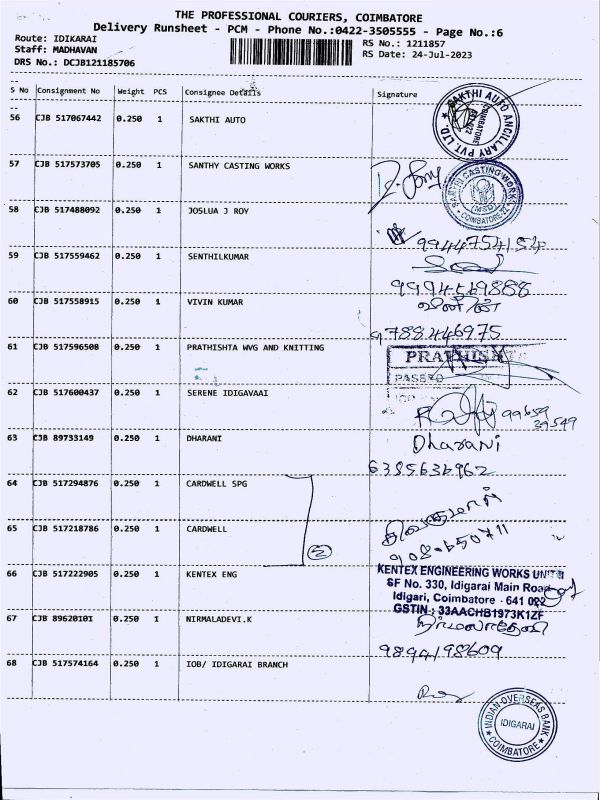 THE PROFESSIONAL COURIERS, COIMBATORE
Delivery Runsheet - PCM - Phone No.:0422-3505555 - Page No.:6
Route: IDIKARAI
Staff: MADHAVAN
DRS No.: DCJB121185706
RS No.: 1211857
RS Date: 24-Jul-2023
S No Consignment No Weight PCS Consignee Details Signature
56 CJB 517067442 0.250 1 SAKTHI AUTO
SAKTHI AUTO ANCILLARY PVT. LTD.
COIMBATORE
57 CJB 517573705 0.250 1 SANTHY CASTING WORKS
SANTHI CASTING WORKS
COIMBATORE
58 CJB 517488092 0.250 1 JOSLUA J ROY
9944754154
59 CJB 517559462 0.250 1 SENTHILKUMAR
9994569888
60 CJB 517558915 0.250 1 VIVIN KUMAR
9788446975
61 CJB 517596508 0.250 1 PRATHISHTA WVG AND KNITTING
PRATHISHTA
PASSED
62 CJB 517600437 0.250 1 SERENE IDIGAVAAI
99659
39549
63 CJB 89733149 0.250 1 DHARANI
Dharani
6385636962
64 CJB 517294876 0.250 1 CARDWELL SPG
65 CJB 517218786 0.250 1 CARDWELL
2
66 CJB 517222905 0.250 1 KENTEX ENG
KENTEX ENGINEERING WORKS
SF No. 330, Idigarai Main Road
Idigari, Coimbatore - 641 022
GSTIN : 33AACHB1973K1ZF
67 CJB 89620101 0.250 1 NIRMALADEVI.K
நிர்மலாதேவி
9894198609
68 CJB 517574164 0.250 1 IOB/ IDIGARAI BRANCH
INDIAN OVERSEAS BANK
IDIGARAI
COIMBATORE